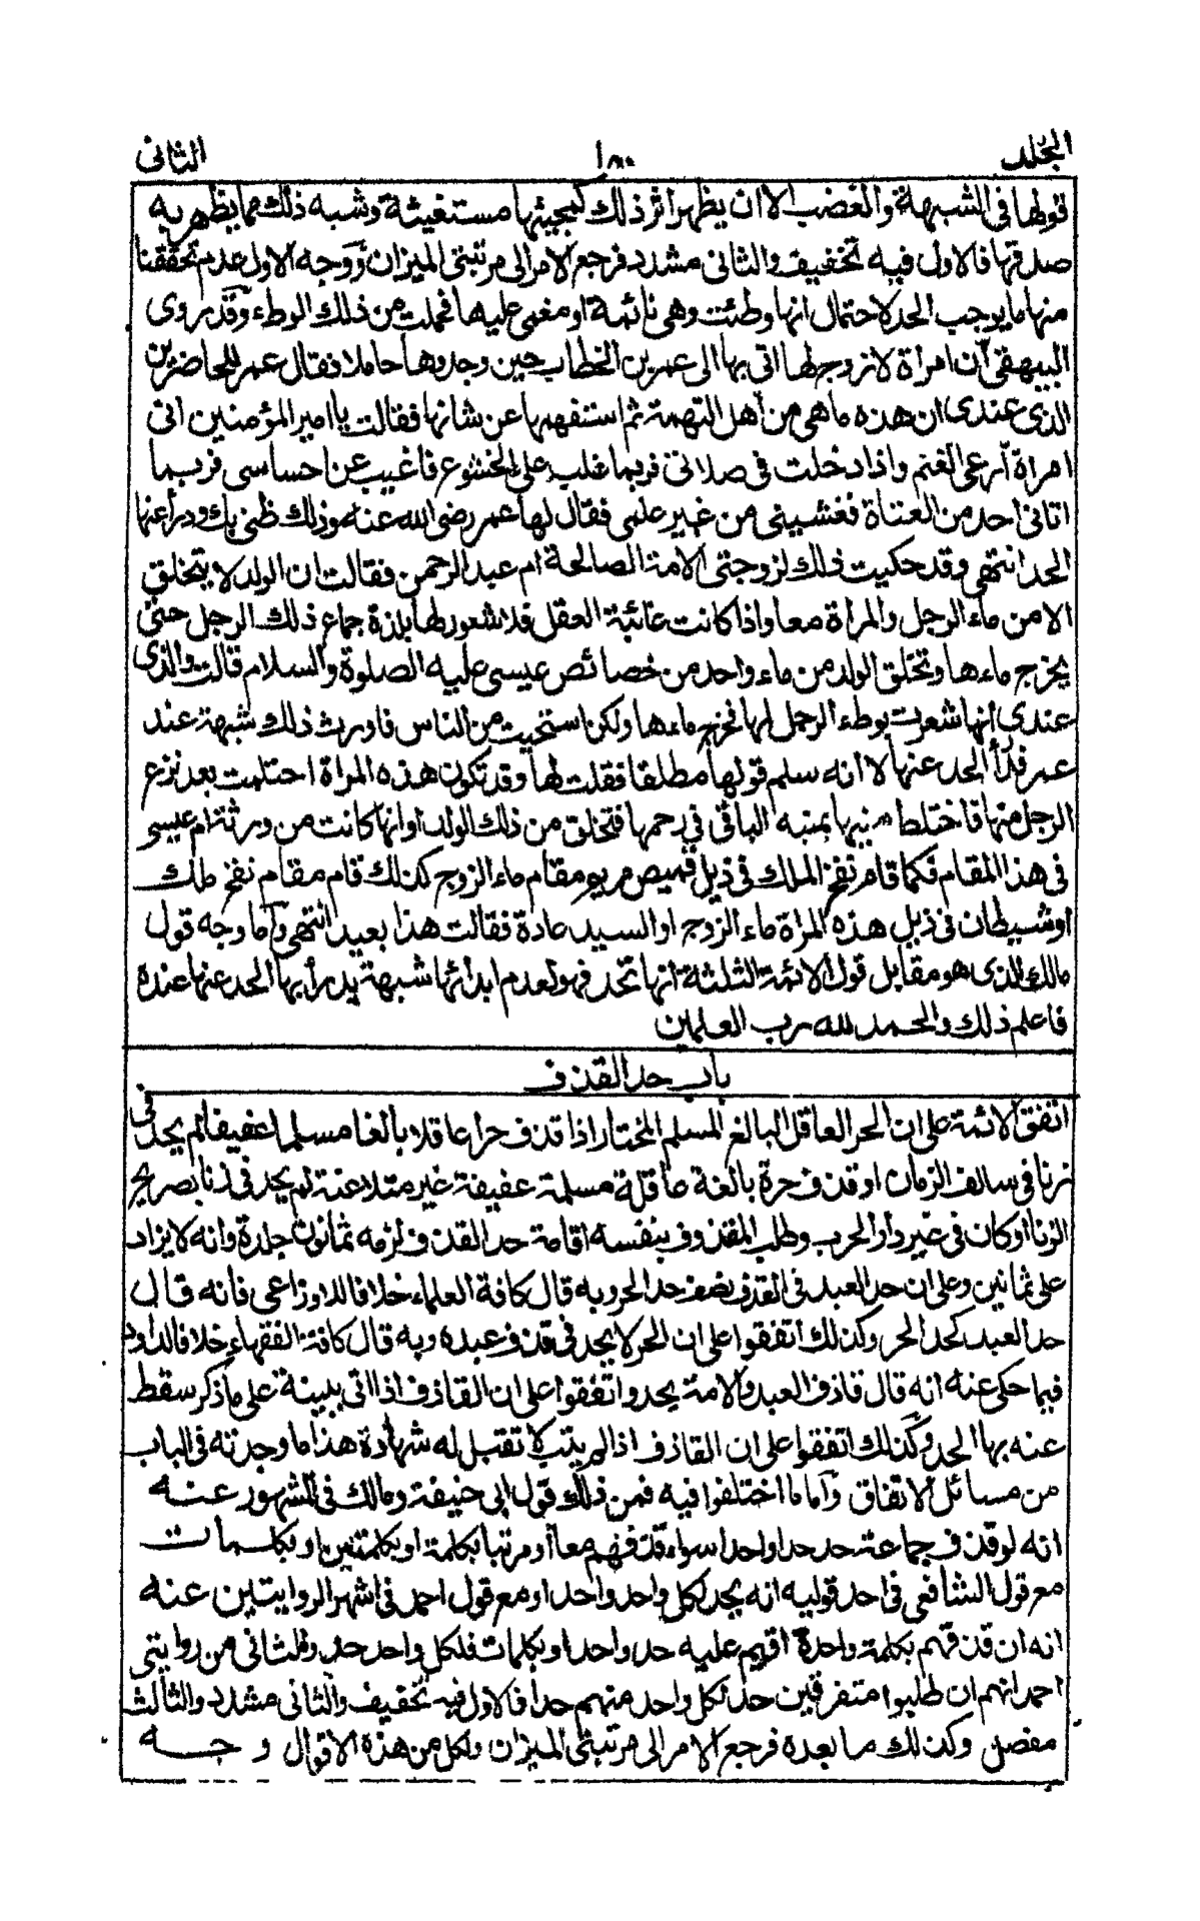 المجلد ١٨٠ الثانى
قولها فى الشبهة والغصب الا ان يظهر اثر ذلك كمجيئها مستغيثة وشبه ذلك مما يظهر به
صدقها فالاول فيه تخفيف والثانى مشدد فرجع الامر الى مرتبتى الميزان ووجه الاول عدم تحققنا
منها ما يوجب الحد لاحتمال انها وطئت وهى نائمة او مغمى عليها فحملت من ذلك الوطء وقد روى
البيهقى ان امرأة لا زوج لها اتى بها الى عمر بن الخطاب حين وجدوها حاملا فقال عمر للحاضرين
الذى عندى ان هذه ما هى من اهل التهمة ثم استفهمها عن شانها فقالت يا امير المؤمنين انى
امراة ارعى الغنم واذا دخلت فى صلاتى فربما غلب على الخشوع فاغيب عن احساسى فربما
اتانى احد من العتاة فغشينى من غير علمى فقال لها عمر رضى الله عنه وذلك ظنى بك ودرأ عنها
الحد انتهى وقد حكيت ذلك لزوجتى الامة الصالحة ام عبد الرحمن فقالت ان الولد لا يتخلق
الا من ماء الرجل والمراة معا واذا كانت غائبة العقل فلا شعور لها بلذة جماع ذلك الرجل حتى
يخرج ماءها وتخلق الولد من ماء واحد من خصائص عيسى عليه الصلوة والسلام قالت والذى
عندى انها شعرت بوطء الرجل لها فخرج ماءها ولكن استحيت من الناس فاورث ذلك شبهة عند
عمر فدرأ الحد عنها لا انه سلم قولها مطلقا فقلت لها وقد تكون هذه المراة احتلمت بعد نزع
الرجل منها فاختلط منيها بمنيه الباقى فى رحمها فتخلق من ذلك الولد او انها كانت من ورثة ام عيسى
فى هذا المقام فكما قام نفخ الملك فى ذيل قميص مريم مقام ماء الزوج كذلك قام مقام نفخ ملك
او شيطان فى ذيل هذه المراة ماء الزوج او السيد عادة فقالت هذا بعيد انتهى واما وجه قول
مالك الذى هو مقابل قول الائمة الثلثة انها تحد فهو لعدم ابدائها شبهة يدرأ بها الحد عنها عنده
فاعلم ذلك والحمد لله رب العلمين
باب حد القذف
اتفق الائمة على ان الحر العاقل البالغ المسلم المختار اذا قذف حرا عاقلا بالغا مسلما عفيفا لم يحد فى
زنا فى سالف الزمان او قذف حرة بالغة عاقلة مسلمة عفيفة غير متلاعنة لم يحد فى زنا بصريح
الزنا وكان فى غير دار الحرب وطلب المقذوف بنفسه اقامة حد القذف لزمه ثمانون جلدة وانه لا يزاد
على ثمانين وعلى ان حد العبد فى القذف نصف حد الحر وبه قال كافة العلماء خلافا للاوزاعى فانه قال
حد العبد كحد الحر وكذلك اتفقوا على ان الحر لا يحد فى قذف عبده وبه قال كافة الفقهاء خلافا لداود
فيما حكى عنه انه قال قاذف العبد والامة يحد واتفقوا على ان القاذف اذا اتى ببينة على ما ذكر سقط
عنه بها الحد وكذلك اتفقوا على ان القاذف اذا لم يتب لا تقبل له شهادة هذا ما وجدته فى الباب
من مسائل الاتفاق واما ما اختلفوا فيه فمن ذلك قول ابى حنيفة ومالك فى المشهور عنه
انه لو قذف جماعة حد حدا واحدا سواء قذفهم معا او مرتبا بكلمة او بكلمتين او بكلمات
مع قول الشافعى فى احد قوليه انه يحد لكل واحد واحدا ومع قول احمد فى اشهر الروايتين عنه
انه ان قذفهم بكلمة واحدة اقيم عليه حد واحد او بكلمات فلكل واحد حد والثانى من روايتى
احمد انهم ان طلبوا متفرقين حد لكل واحد منهم حدا فالاول فيه تخفيف والثانى مشدد والثالث
مفصل وكذلك ما بعده فرجع الامر الى مرتبتى الميزان ولكل من هذه الاقوال وجه